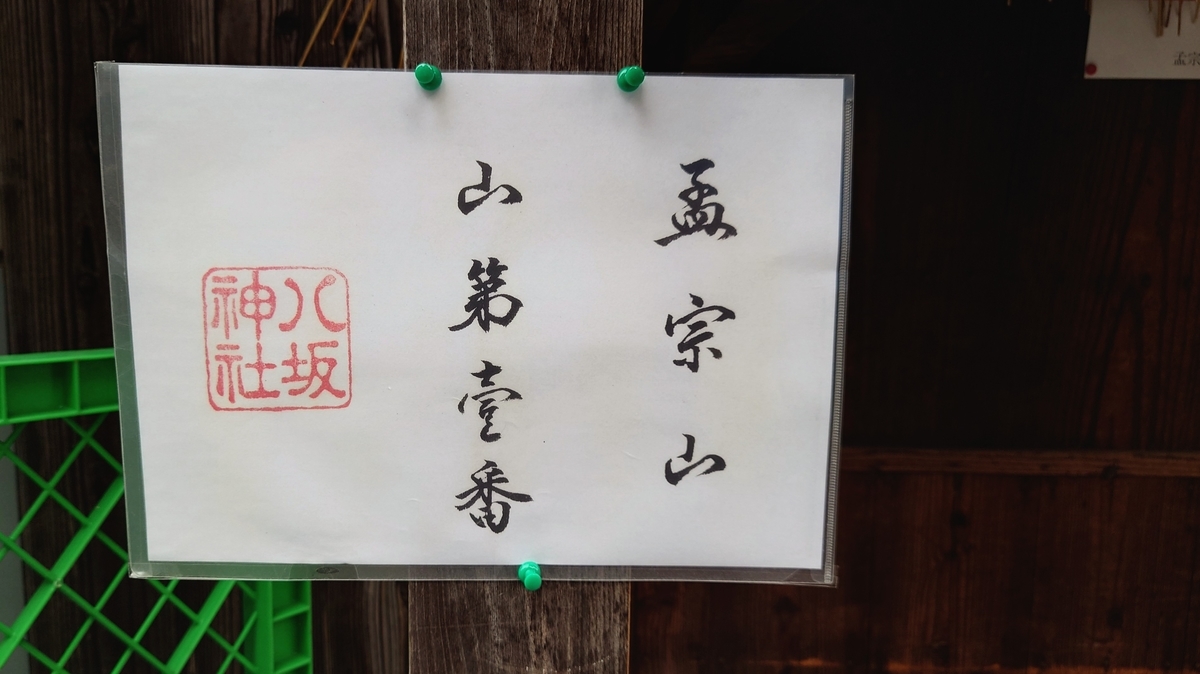 孟宗山
山第壹番
八坂
神社
孟宗